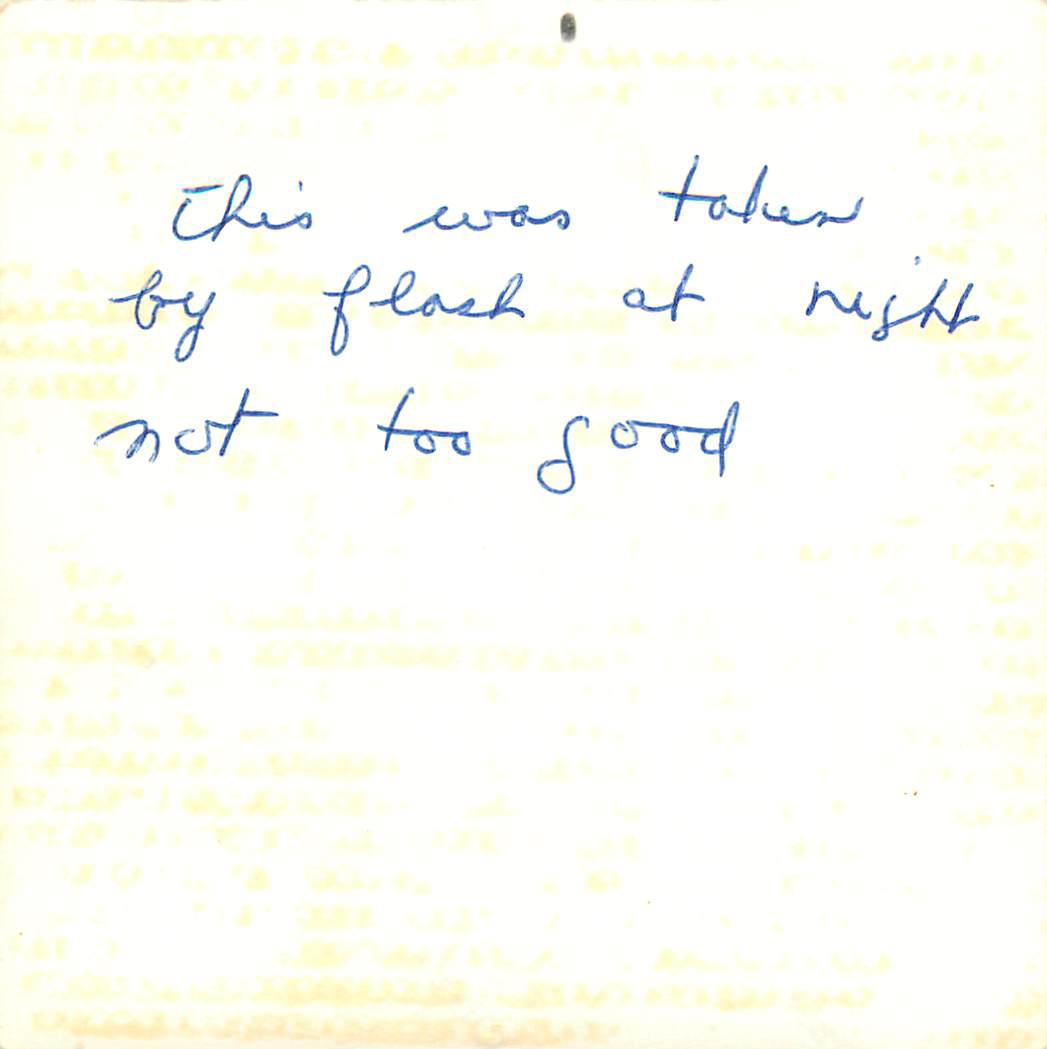 this was taken
by flash at night
not too good